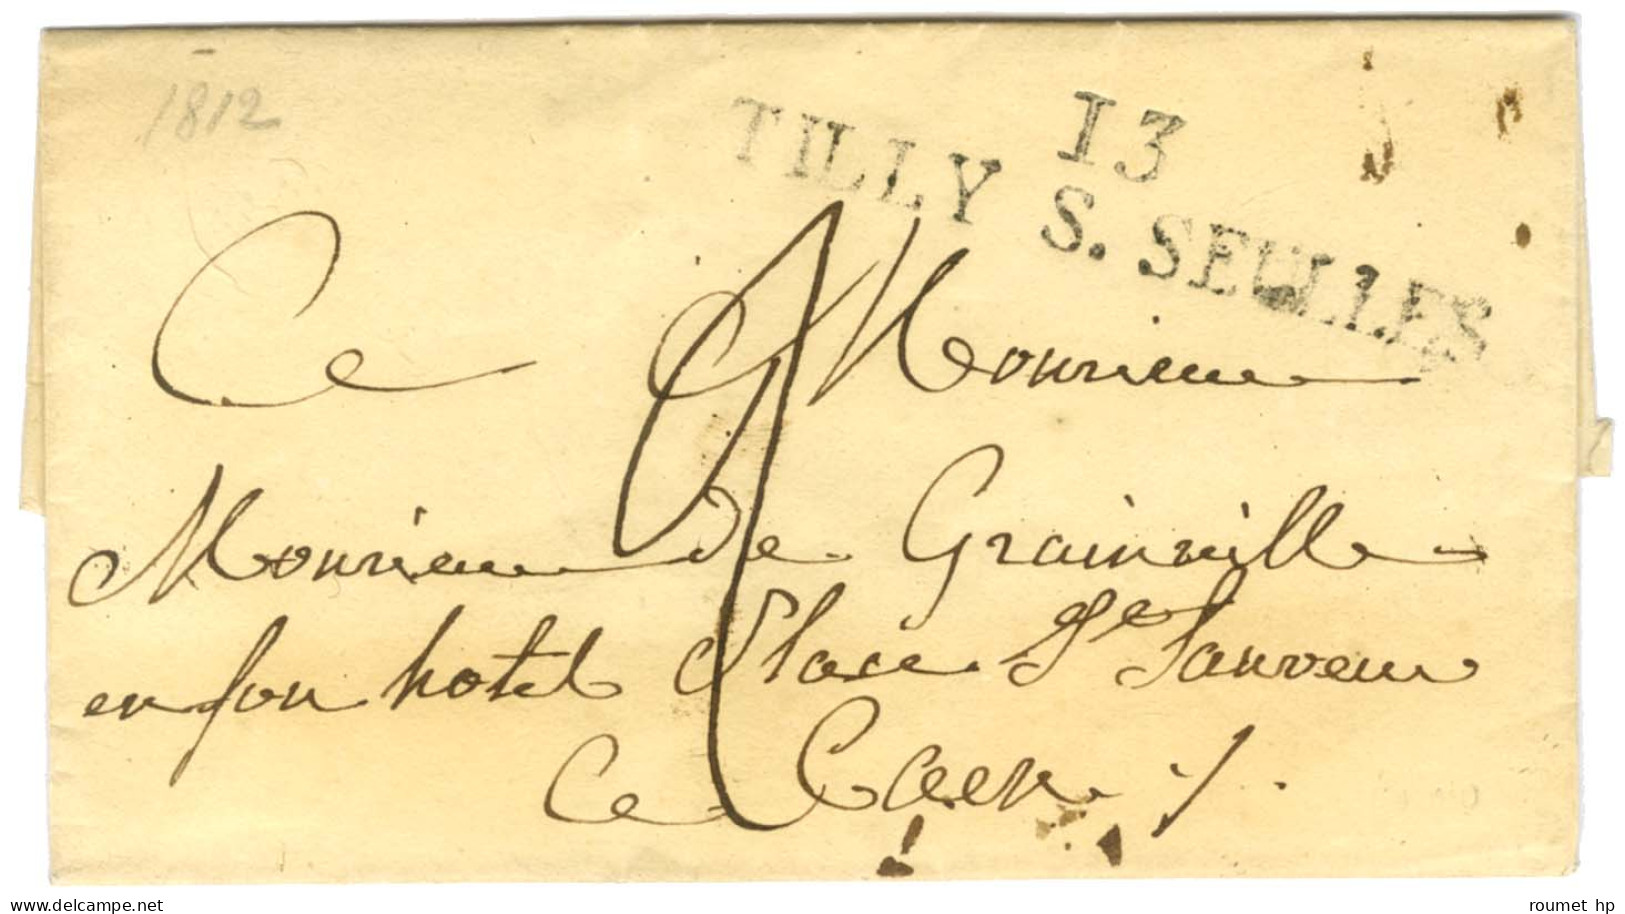 1812
13
TILLY S. SEULLES
A Monsieur
Monsieur de Grainville
en son hotel Place St Sauveur
A Caen
delcampe.net
roumet hp